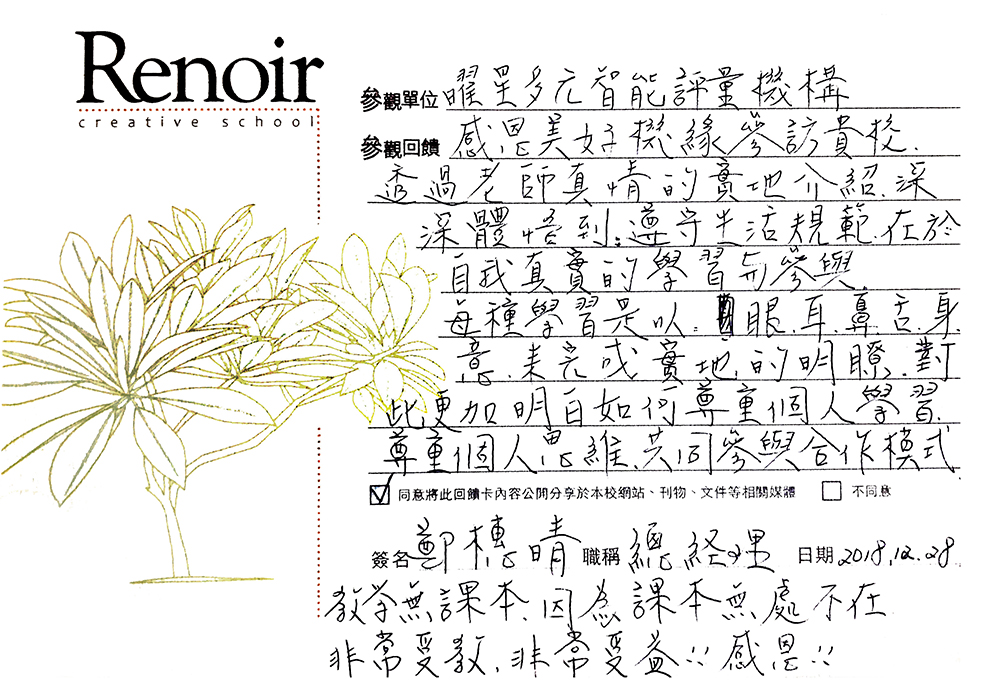 Renoir
creative school
參觀單位 曜星多元智能評量機構
參觀回饋 感恩美好機緣參訪貴校.
透過老師真情的實地介紹.深
深體悟到:遵守生活規範.在於
自我真實的學習與參與.
每種學習是以: 眼.耳.鼻.舌.身.
意.來完成實地.的明瞭.對
此更加明白如何尊重個人學習.
尊重個人思維.共同參與合作模式
同意將此回饋卡內容公開分享於本校網站、刊物、文件等相關媒體 不同意
簽名 鄭穗晴 職稱 總經理 日期 2018.12.28
教學無課本.因為課本無處不在
非常受教.非常受益!!感恩!!